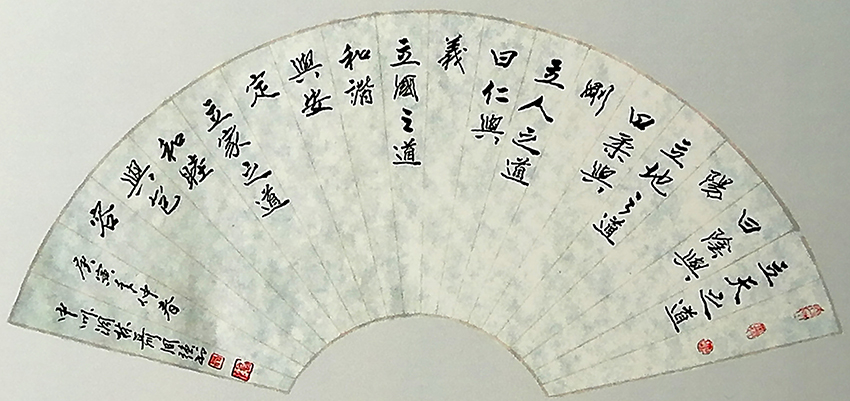 立天之道
曰陰與
陽
立地之道
曰柔與
剛
立人之道
曰仁與
義
立國之道
和諧
與安
定
立家之道
和睦
與包
容
庚寅年仲春
中州